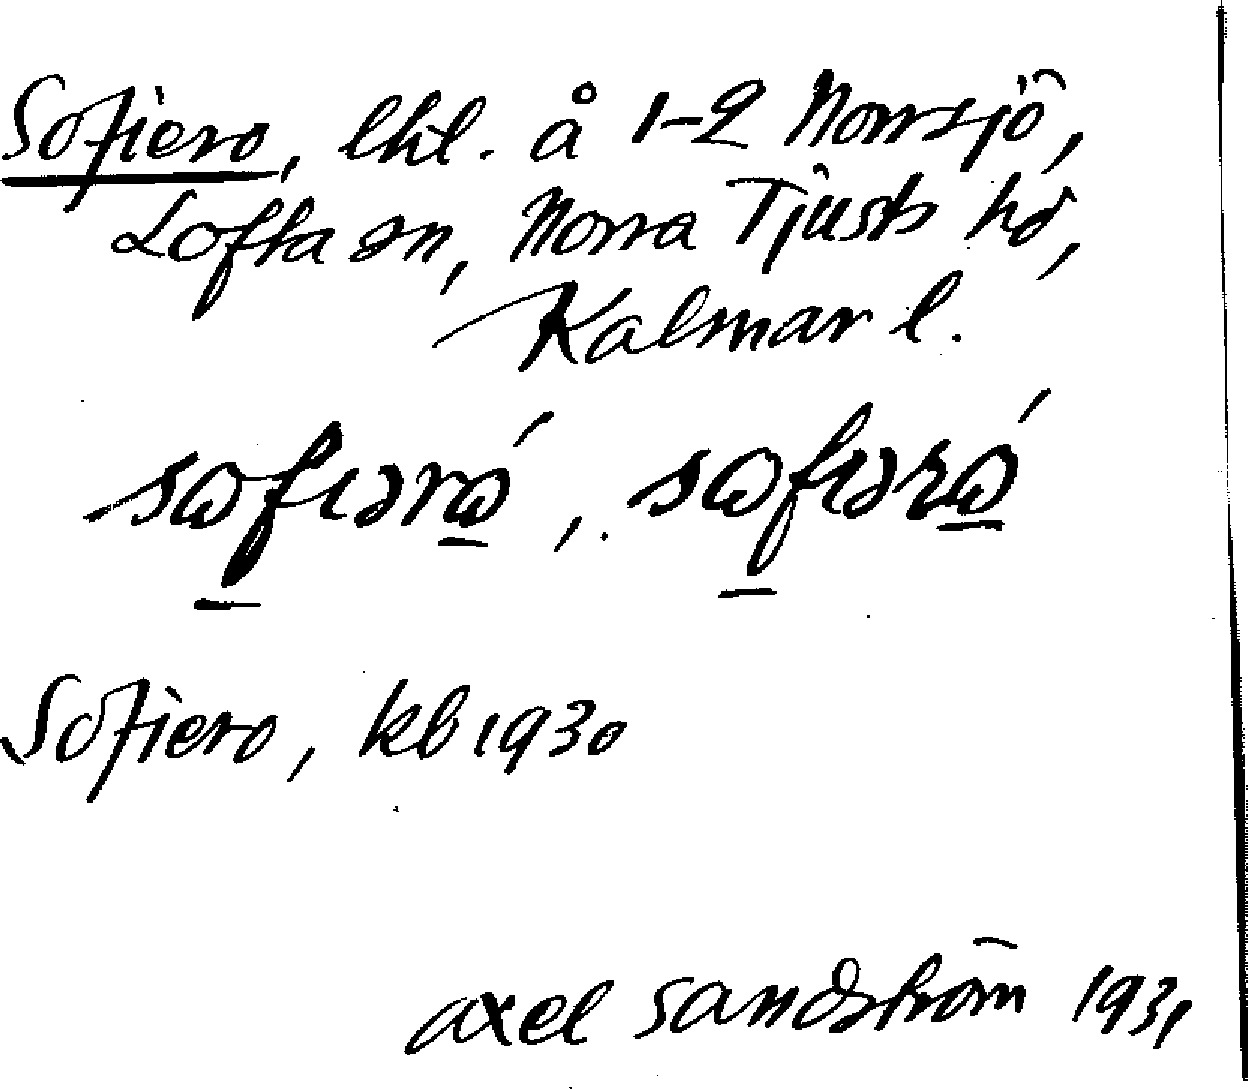 Sofiero, lht. å 1-2 Norrsjö,
Lofta sn, Norra Tjusts hd,
Kalmar l.
Sofiero, kb 1930
Axel Sandström 1931